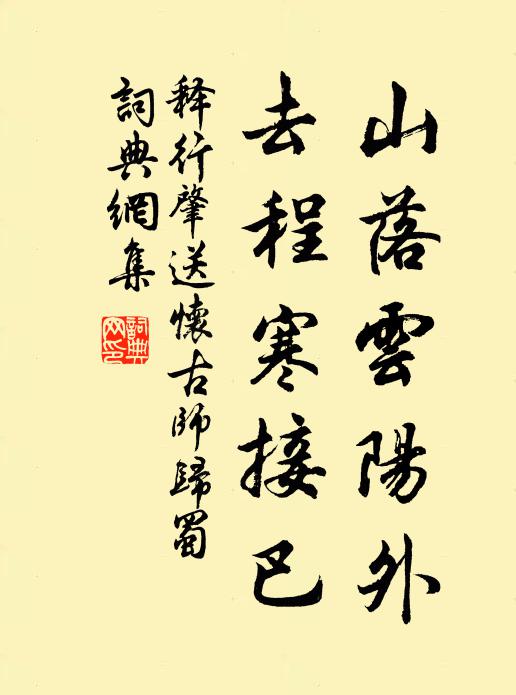 山落雲陽外
去程寒接巴
释行肇送懷古師歸蜀
詞典網集
詞典網印